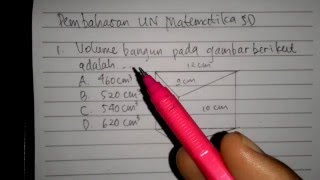 Pembahasan UN Matematika SD
1. Volume bangun pada gambar berikut
adalah ...
12 cm
A. 460 cm³
9 cm
B. 520 cm³
C. 540 cm³
10 cm
D. 620 cm³